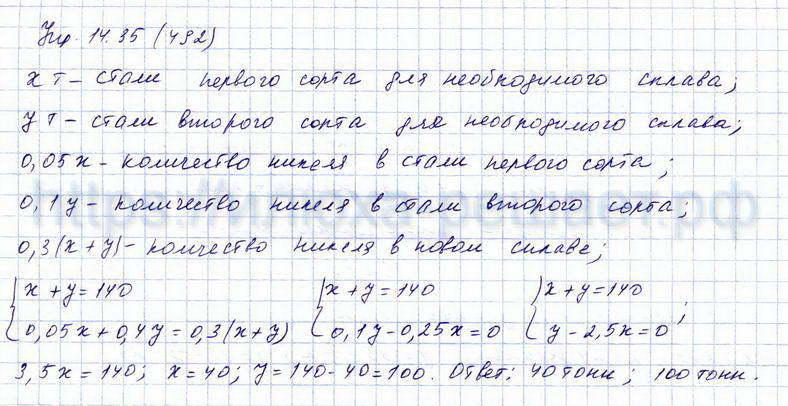 Упр. 14.35 (492)
x т – стали первого сорта для необходимого сплава;
y т – стали второго сорта для необходимого сплава;
0,05x – количество никеля в стали первого сорта;
0,1y – количество никеля в стали второго сорта;
0,3(x+y) – колчество никеля в новом сплаве;
{x+y=140 {x+y=140 {x+y=140
{0,05x+0,4y=0,3(x+y) {0,1y-0,25x=0 {y-2,5x=0;
3,5x=140; x=40; y=140-40=100. Ответ: 40 тонн; 100 тонн.